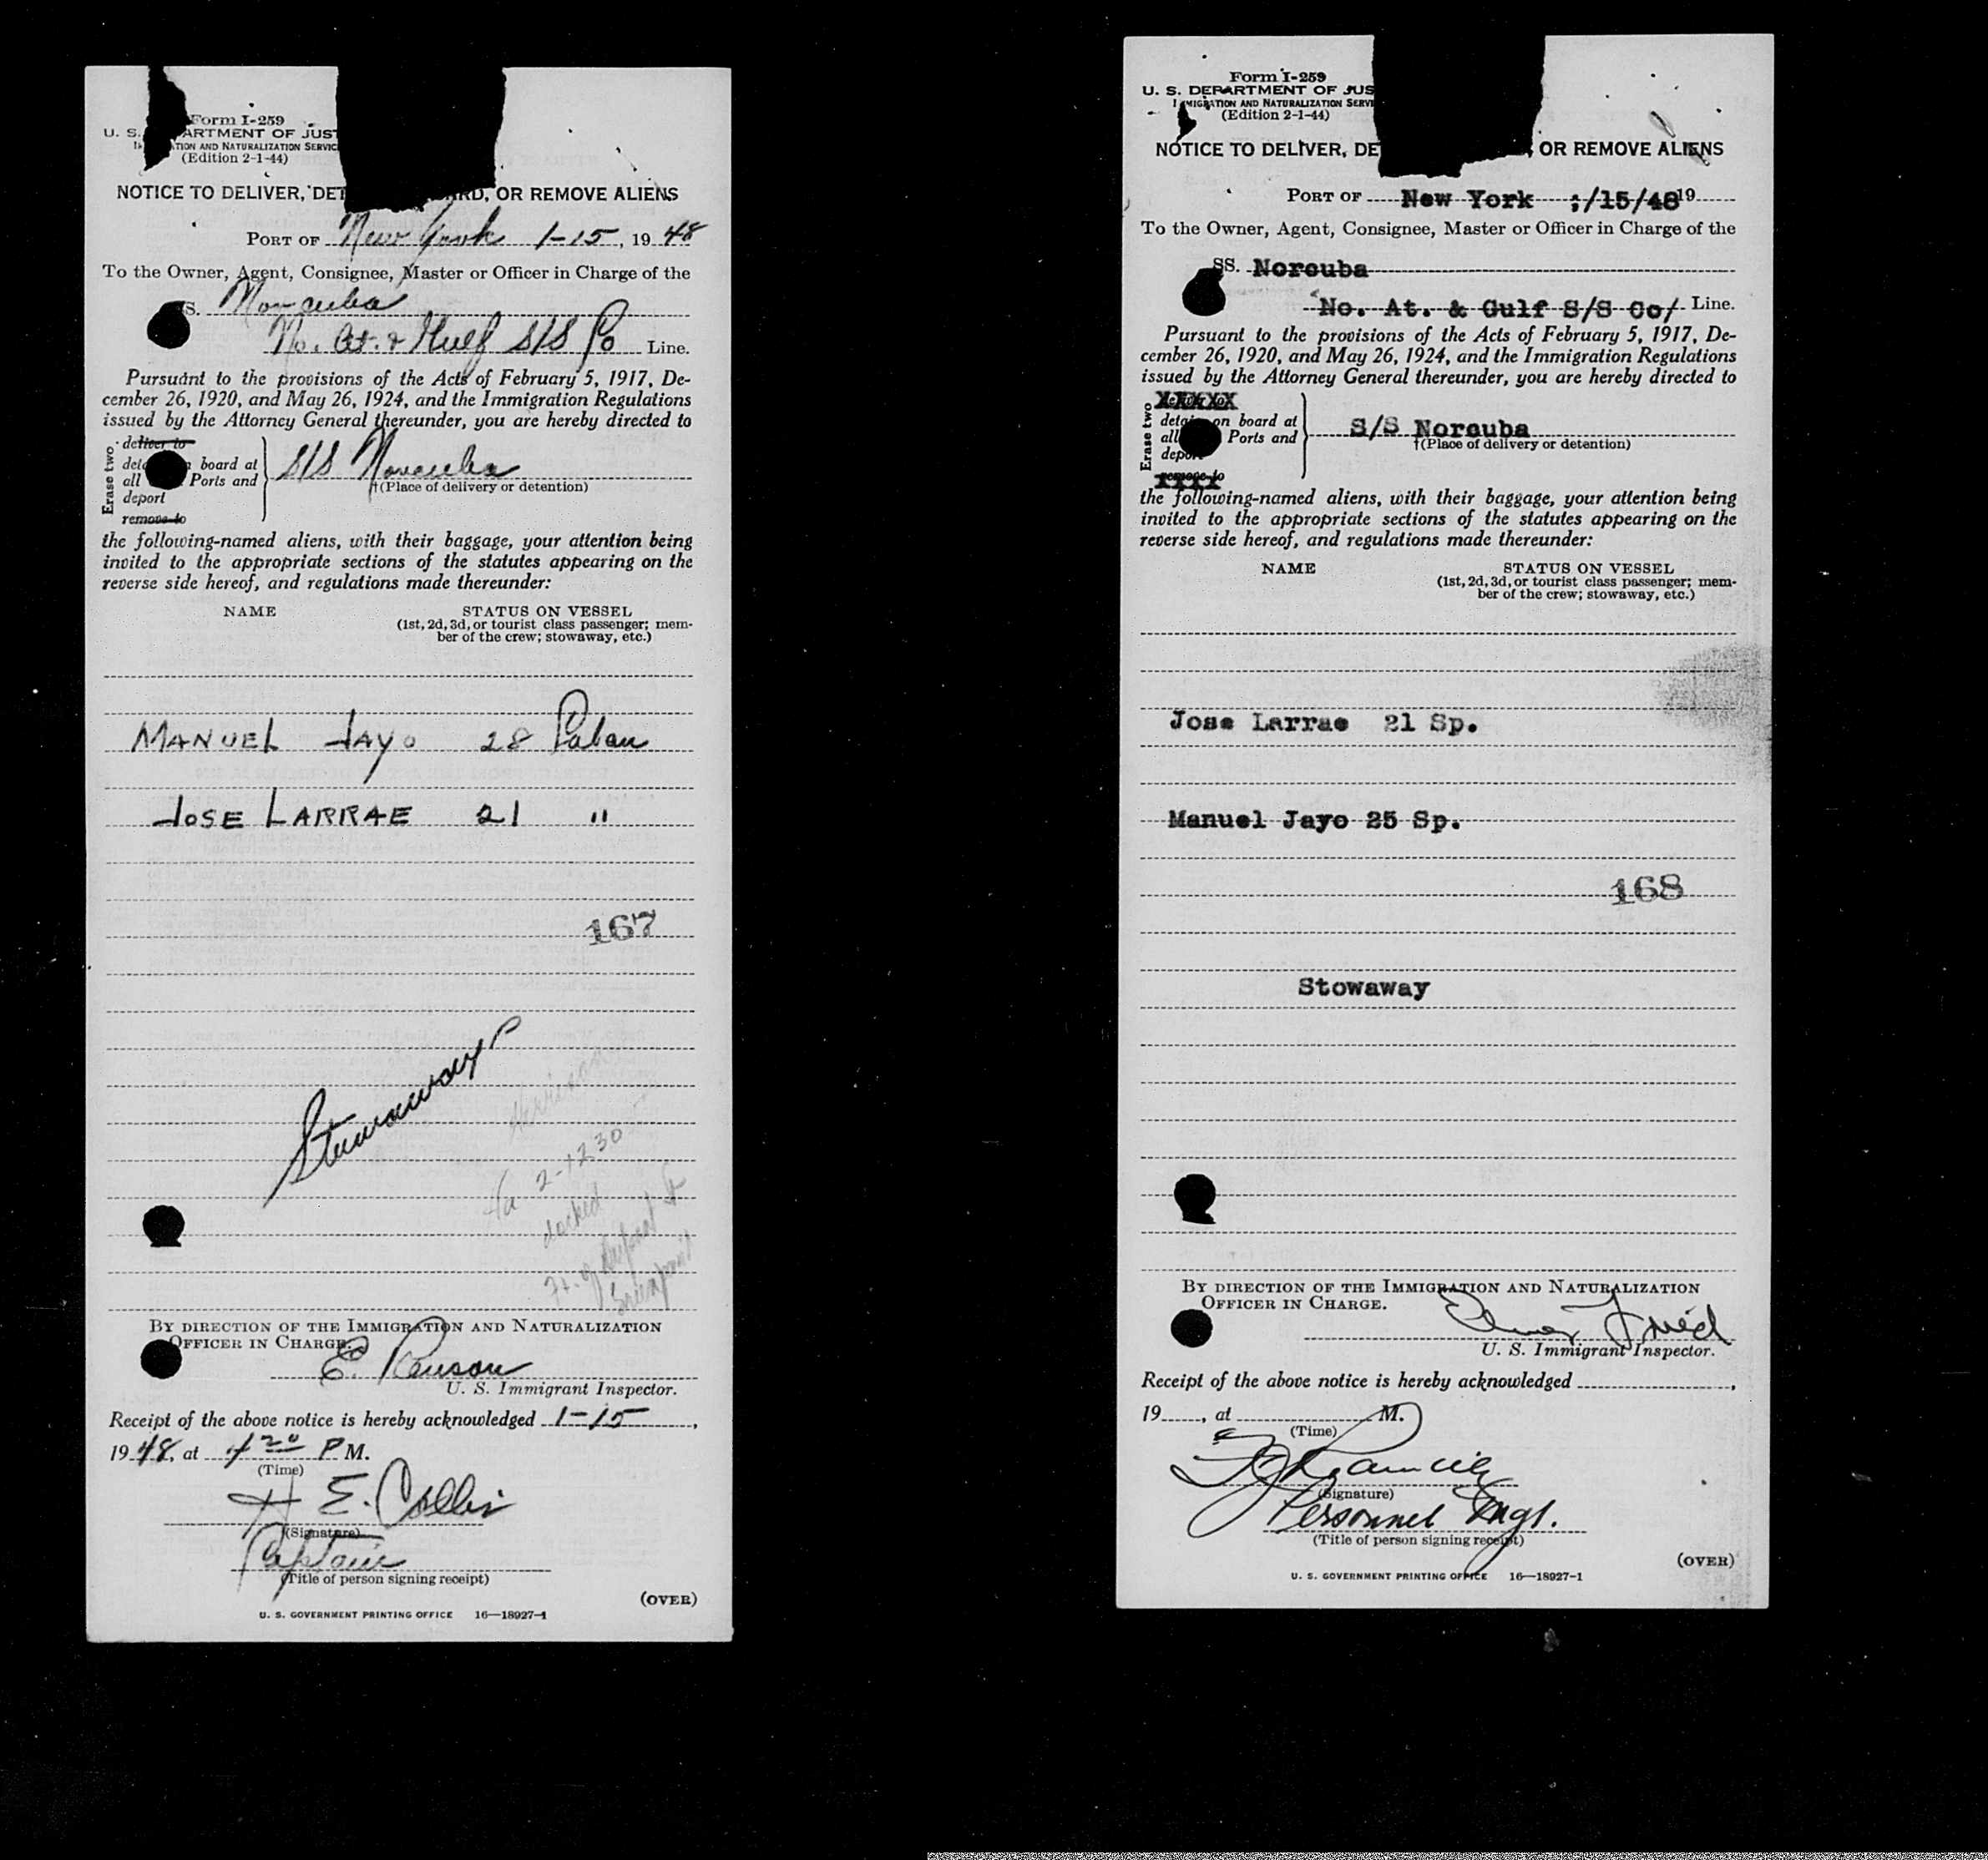 Form I-259
U. S. ARTMENT OF JUST
TION AND NATURALIZATION SERVIC
(Edition 2-1-44)
NOTICE TO DELIVER, DET RD, OR REMOVE ALIENS
PORT OF New York 1-15, 19 48
To the Owner, Agent, Consignee, Master or Officer in Charge of the
S. Norcuba
No. At. & Gulf S/S Co Line.
Pursuant to the provisions of the Acts of February 5, 1917, De-
cember 26, 1920, and May 26, 1924, and the Immigration Regulations
issued by the Attorney General thereunder, you are hereby directed to
Erase two
deliver to
board at
all Ports and
deport
remove to
S/S Norcuba
†(Place of delivery or detention)
the following-named aliens, with their baggage, your attention being
invited to the appropriate sections of the statutes appearing on the
reverse side hereof, and regulations made thereunder:
NAME STATUS ON VESSEL
(1st, 2d, 3d, or tourist class passenger; mem-
ber of the crew; stowaway, etc.)
MANUEL JAYO 28
JOSE LARRAE 21 "
167
Stowaways
2-1230
docked
BY DIRECTION OF THE IMMIGRATION AND NATURALIZATION
OFFICER IN CHARGE.
E.
U. S. Immigrant Inspector.
Receipt of the above notice is hereby acknowledged 1-15,
19 48, at 4 20 P M.
(Time)
H E. Collin
(Signature)
Captain
(Title of person signing receipt)
(OVER)
U. S. GOVERNMENT PRINTING OFFICE 16—18927-1
Form I-259
U. S. DEPARTMENT OF JUS
I MIGRATION AND NATURALIZATION SERVI
(Edition 2-1-44)
NOTICE TO DELIVER, DE , OR REMOVE ALIENS
PORT OF New York ;/15/48 19
To the Owner, Agent, Consignee, Master or Officer in Charge of the
SS. Norcuba
No. At. & Gulf S/S Co/ Line.
Pursuant to the provisions of the Acts of February 5, 1917, De-
cember 26, 1920, and May 26, 1924, and the Immigration Regulations
issued by the Attorney General thereunder, you are hereby directed to
Erase two
XXXXX
on board at
all Ports and
depor
remove to
S/S Norcuba
†(Place of delivery or detention)
the following-named aliens, with their baggage, your attention being
invited to the appropriate sections of the statutes appearing on the
reverse side hereof, and regulations made thereunder:
NAME STATUS ON VESSEL
(1st, 2d, 3d, or tourist class passenger; mem-
ber of the crew; stowaway, etc.)
Jose Larrae 21 Sp.
Manuel Jayo 25 Sp.
168
Stowaway
BY DIRECTION OF THE IMMIGRATION AND NATURALIZATION
OFFICER IN CHARGE.
U. S. Immigrant Inspector.
Receipt of the above notice is hereby acknowledged ,
19 , at M.
(Time)
(Signature)
Personnel Mgr.
(Title of person signing receipt)
(OVER)
U. S. GOVERNMENT PRINTING OFFICE 16—18927-1